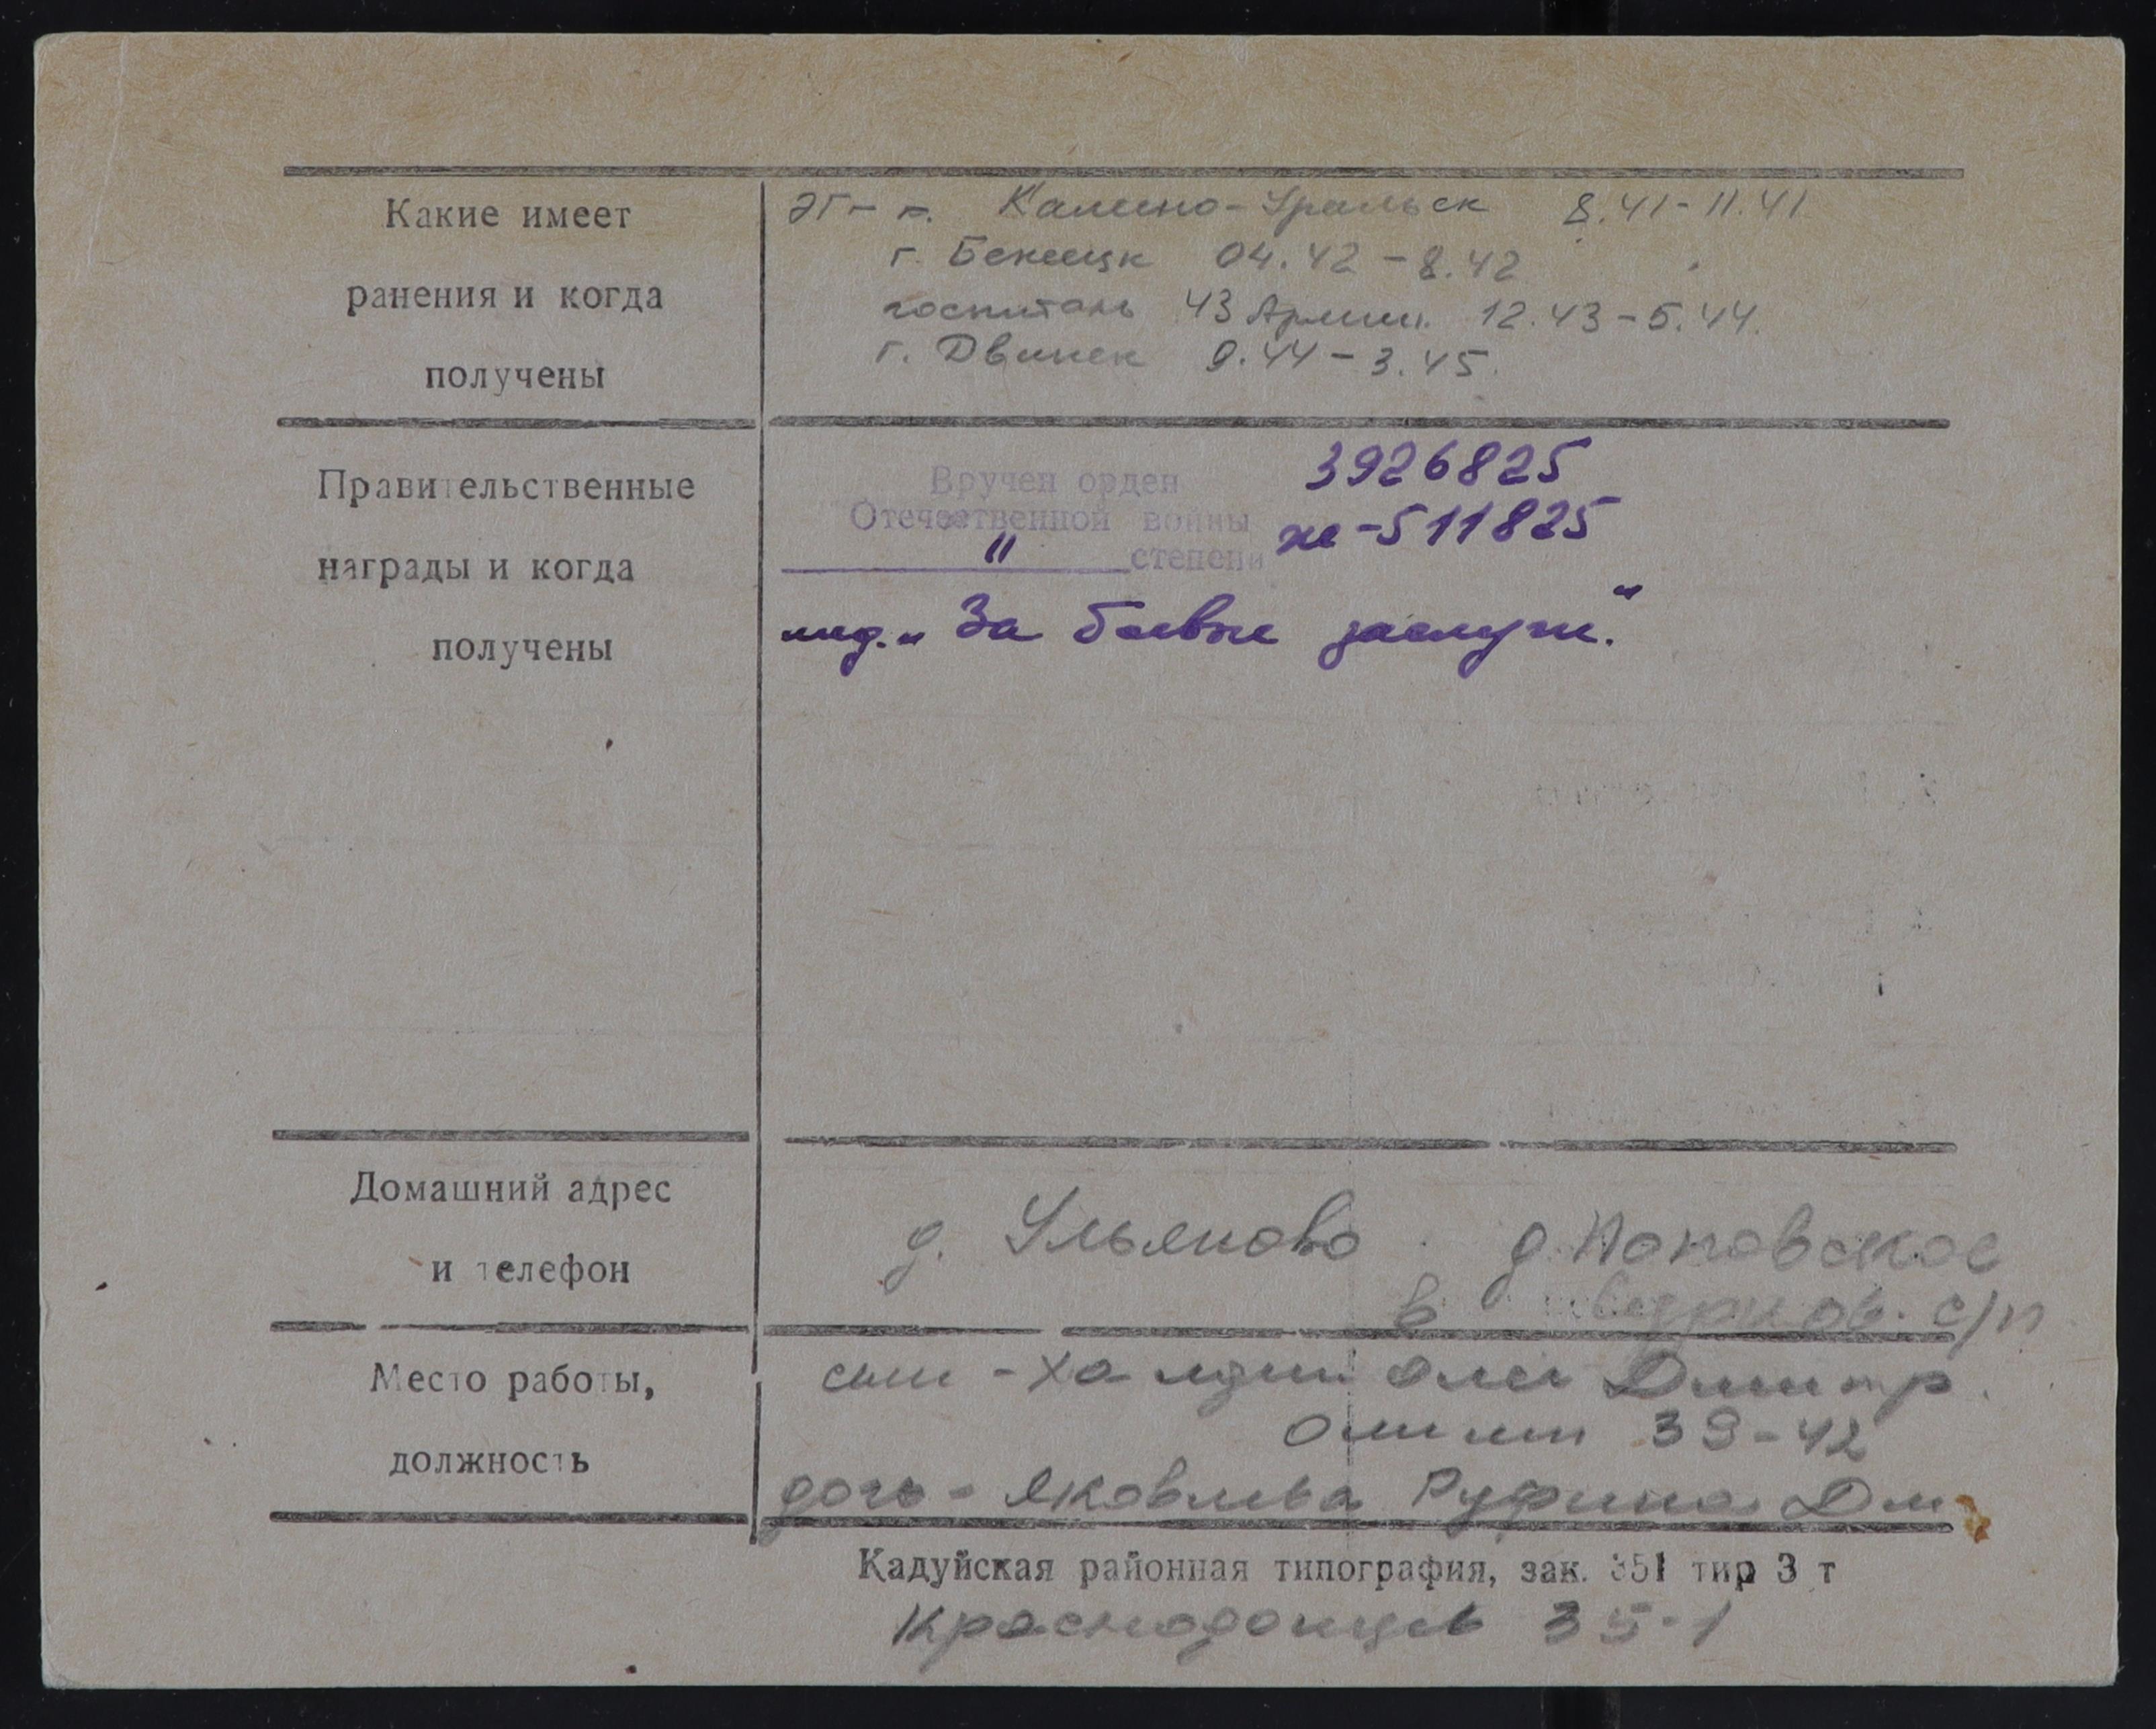 Какие имеет
ранения и когда
получены
ЭГ - г. Камено-Уральск 8.41-11.41
г. Бежецк 04.42-8.42
госпиталь 43 Армии. 12.43-5.44.
г. Двинск 9.44-3.45.
Правительственные
награды и когда
получены
Вручен орден 3926825
Отечественной войны № -511825
" степени
мед. „За боевые заслуги."
Домашний адрес
и телефон
д. Ульяново д. Поповское
с/п
Место работы,
должность
сын - Дмитр.
39-42
дочь - Яковлева Руфина Дм
Кадуйская районная типография, зак. 351 тир 3 т
Краснодонцев 35-1